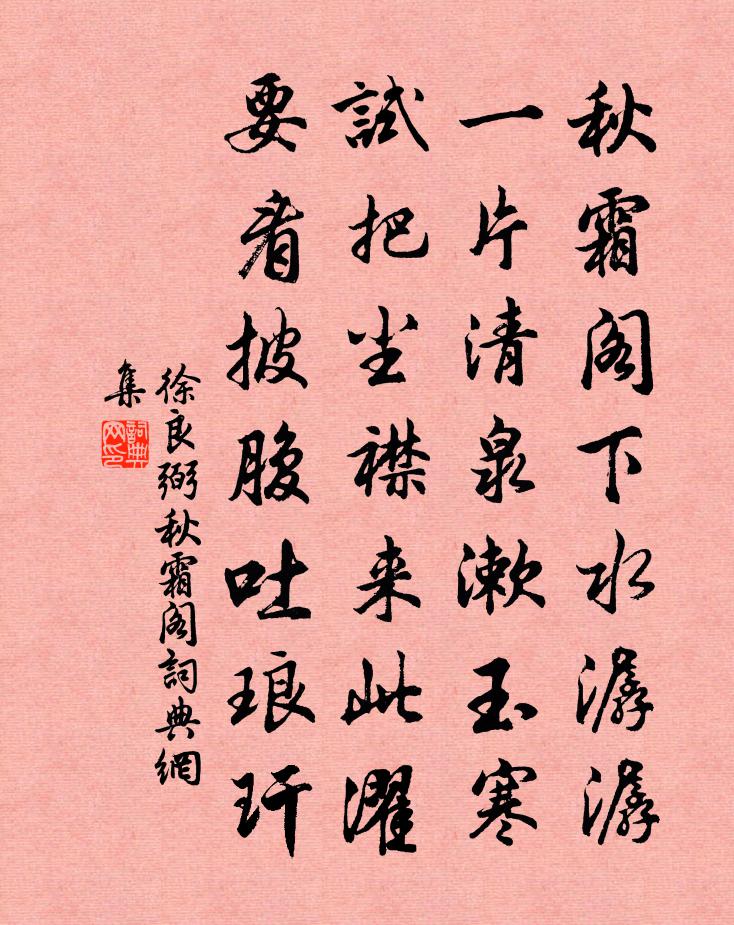 秋霜阁下水潺潺
一片清泉漱玉寒
試把尘襟来此濯
要看披腹吐琅玕
徐良弼秋霜阁詞典網
集
詞典
网印